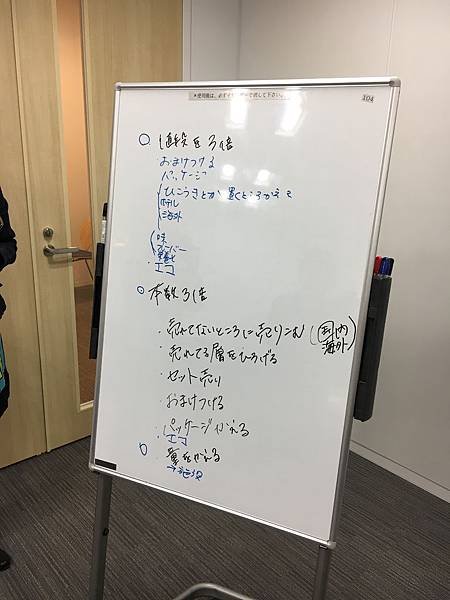 *使用後は、必ず
して下さい。
104
○ 値段を3倍
おまけつける
パッケージ
ひこうきとか 置くところかえる
ホテル
海外
味
エコ
○ 本数3倍
・売れてないところに売りこむ (国内
海外)
・売れてる層をひろげる
・セット売り
・おまけつける
・パッケージかえる
・エコ
・量をかえる